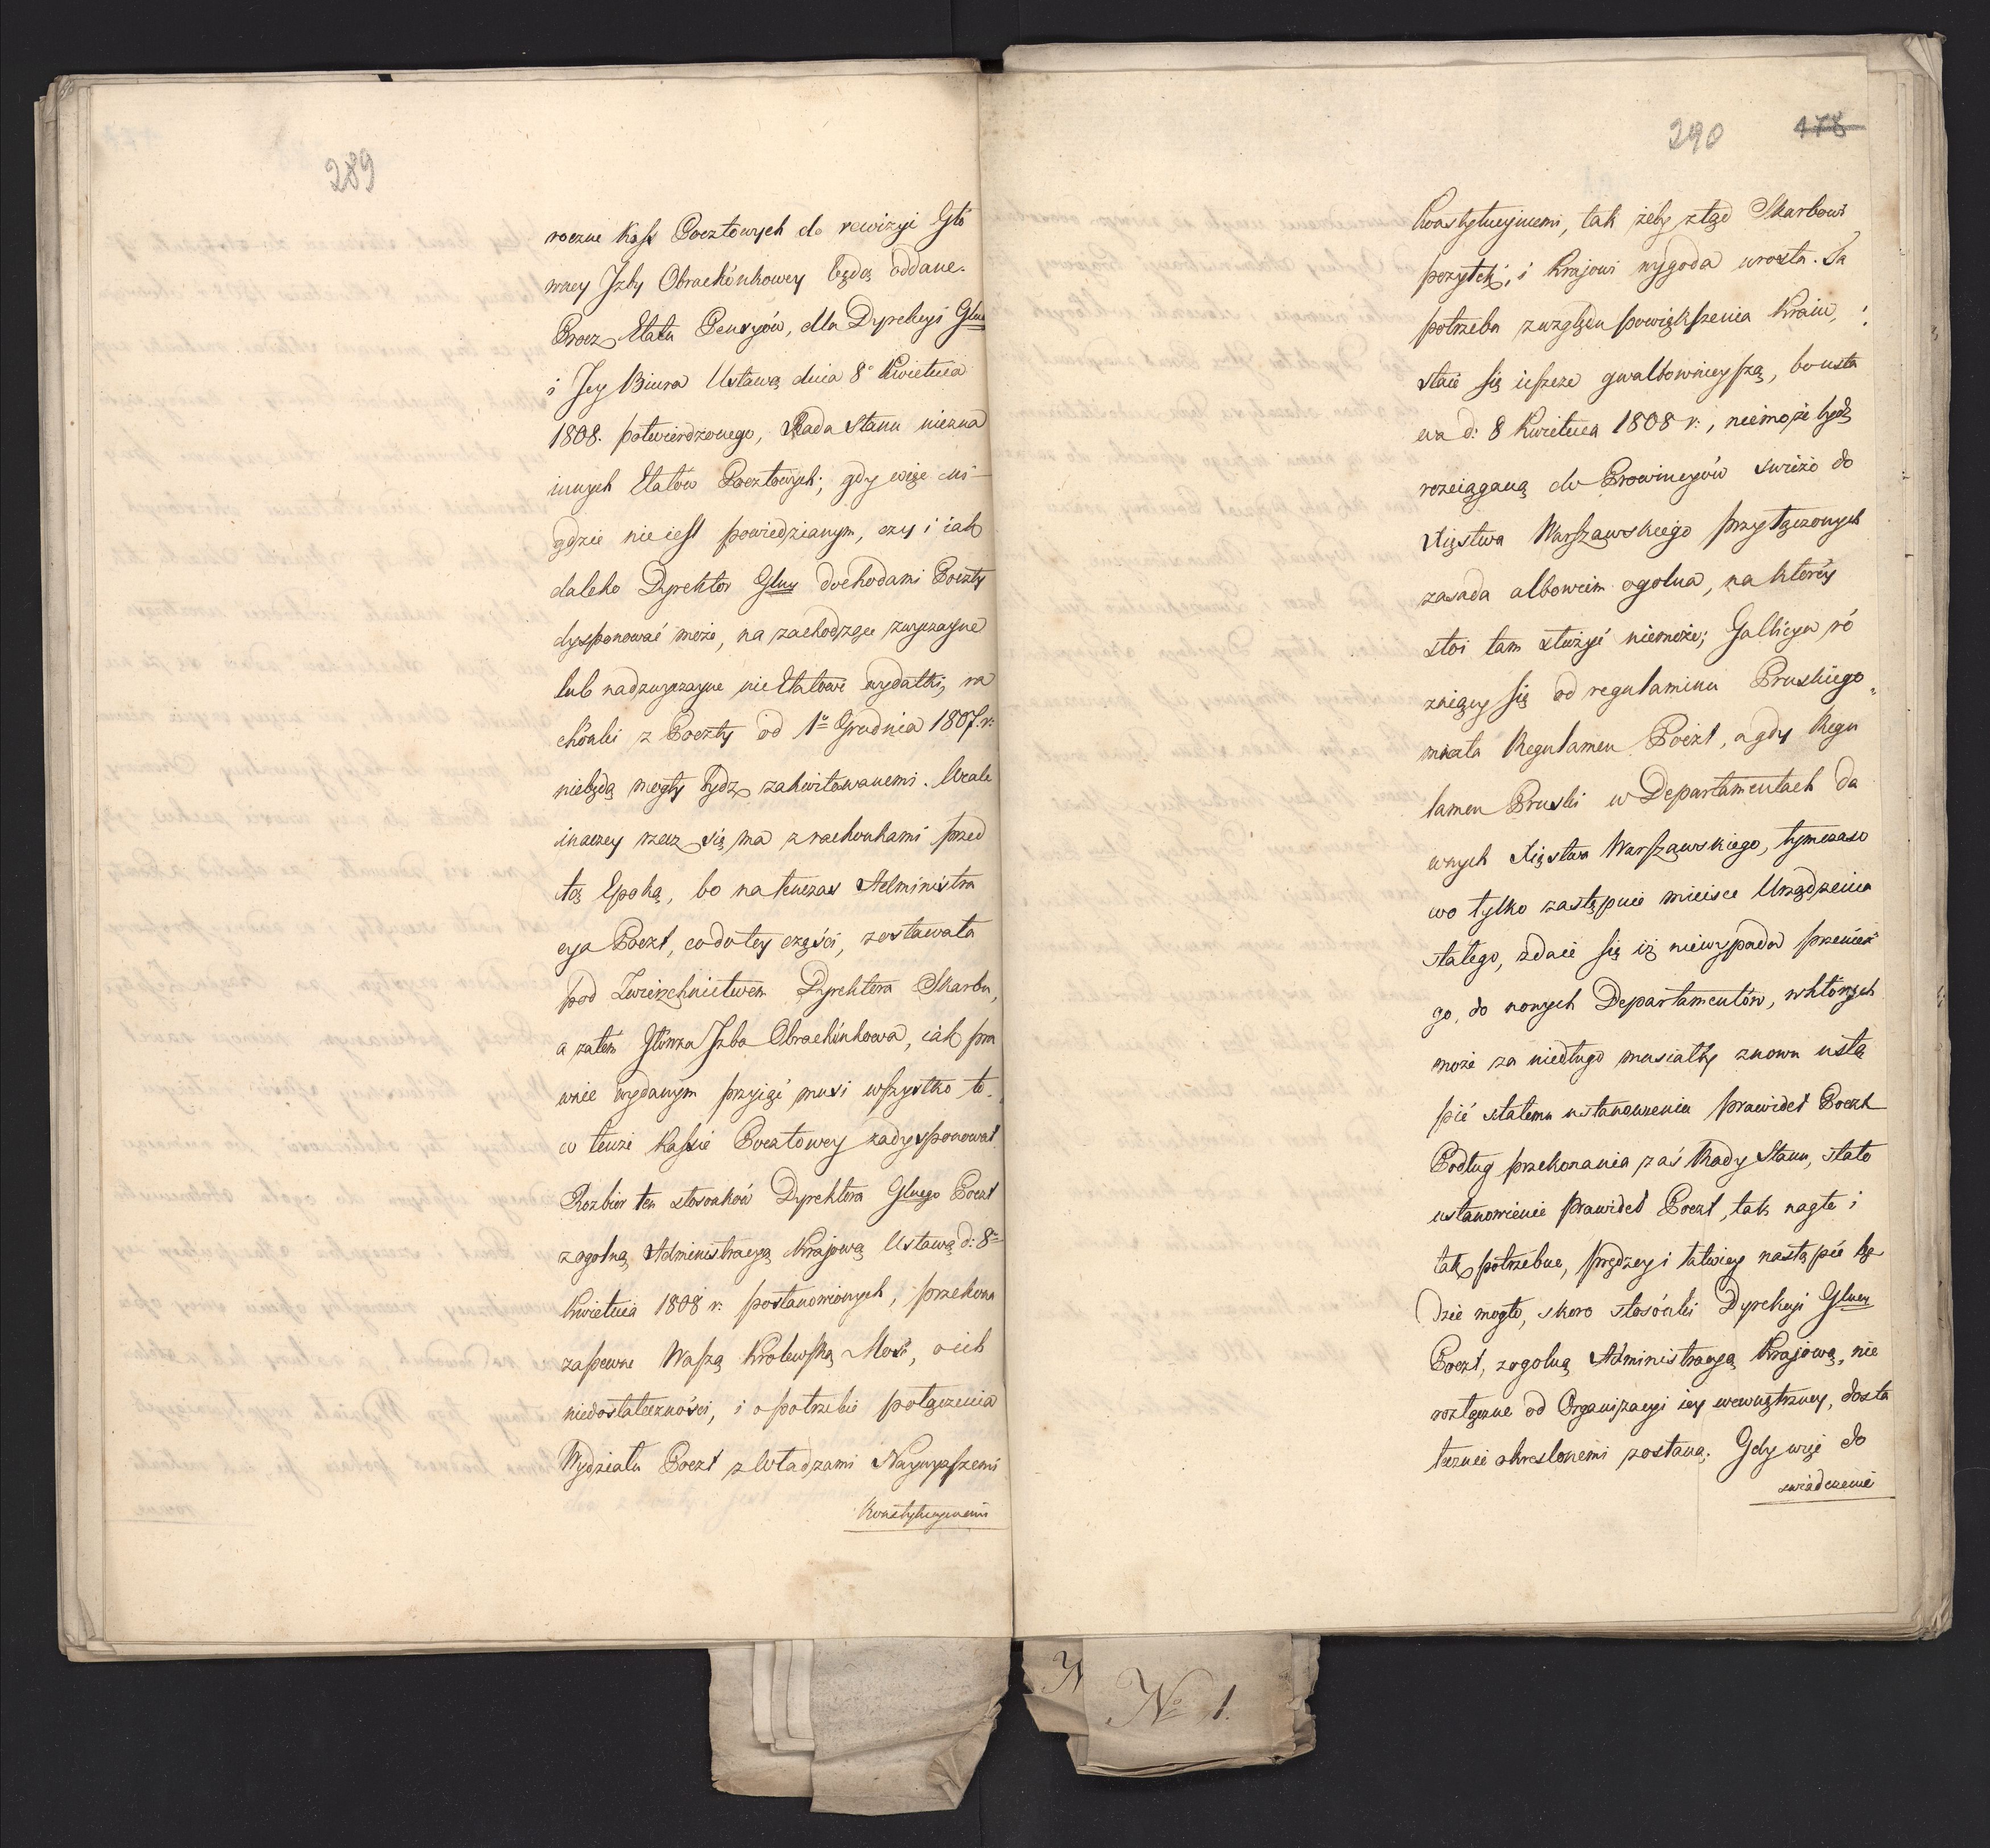 289
roczne Kass Pocztowych do rewizyi Głó
wney Izby Obrachónkowey będą oddane.
Procz Etatu Pensyów, dla Dyrekcyi Głney
i Jey Biura Ustawą dnia 8º Kwietnia
1808. potwierdzonego, Rada Stanu niezna
innych Etatów Pocztowych; gdy więc ni-
gdzie nie iest powiedzianym, czy i iak
daleko Dyrektor Głny dochodami Poczty
dysponować może, na zachodzące zwyczayne
lub nadzwyczayne nie Etatowe wydatki, ra
chónki z Poczty od 1º Grudnia 1807. r:
niebędą mogły bydz zakwitowanemi. Wcale
inaczey rzecz się ma z rachonkami przed
tą Epoką, bo natenczas Administra
cya Poczt, codotey części, zostawała
pod Zwierzchnictwem Dyrektora Skarbu,
a zatém Główna Izba Obrachónkowa, iak pra
wnie wydanym przyiąć musi wszystko to.
co tenże Kassie Pocztowey zadysponował.
Rozbior ten stosonków Dyrektora Głnego Poczt
zogolną Administracyą Krajową Ustawą d: 8º
Kwietnia 1808 r: postanowionych, przekona
zapewne Waszą Królewską Mość, o ich
niedostateczności, i o potrzebie połączenia
Wydziału Poczt z Władzami Naywyższemi
Konstytucyinemi
290 478
Konstytucyinemi, tak żeby ztąd Skarbowi
pozytek, i Krajowi wygoda urosła. Ta
potrzeba zwzględu powiększenia Kraiu,
staie się ieszcze gwałtownieyszą, bo usta
wa d: 8 Kwietnia 1808 r:, niemoże bydź
rozciąganą do Prowincyów swieżo do
Xięstwa Warszawskiego przyłączonych
zasada albowiem ogolna, na którey
stoi tam służyć niemoże; Gallicya ró
zniący się od regulaminu Pruskiego
miała Regulamen Poczt, a gdy Regu
lamen Pruski w Departamentach da
wnych Xięstwa Warszawskiego, tymczaso
wo tylko zastępuie mieisce Urządzenia
stałego, zdaie się iż niewypada przenieść
go, do nowych Departamentów, wktórych
może za niedługo musiałby znowu ustą
pić stałemu ustanowieniu prawideł Poczt
Podług przekonania zaś Rady Stanu, stałe
ustanowienie Prawideł Poczt, tak nagłe i
tak potrzebne, prędzey i łatwiey nastąpić bę
dzie mogło, skoro stosónki Dyrekcyi Głney
Poczt, zogolną Administracyą Krajową, nie
rozłączne od Organizacyi iey wewnętrzney, dosta
tecznie okreslonemi zostaną. Gdy więc do
swiadczenie
Nº 1.